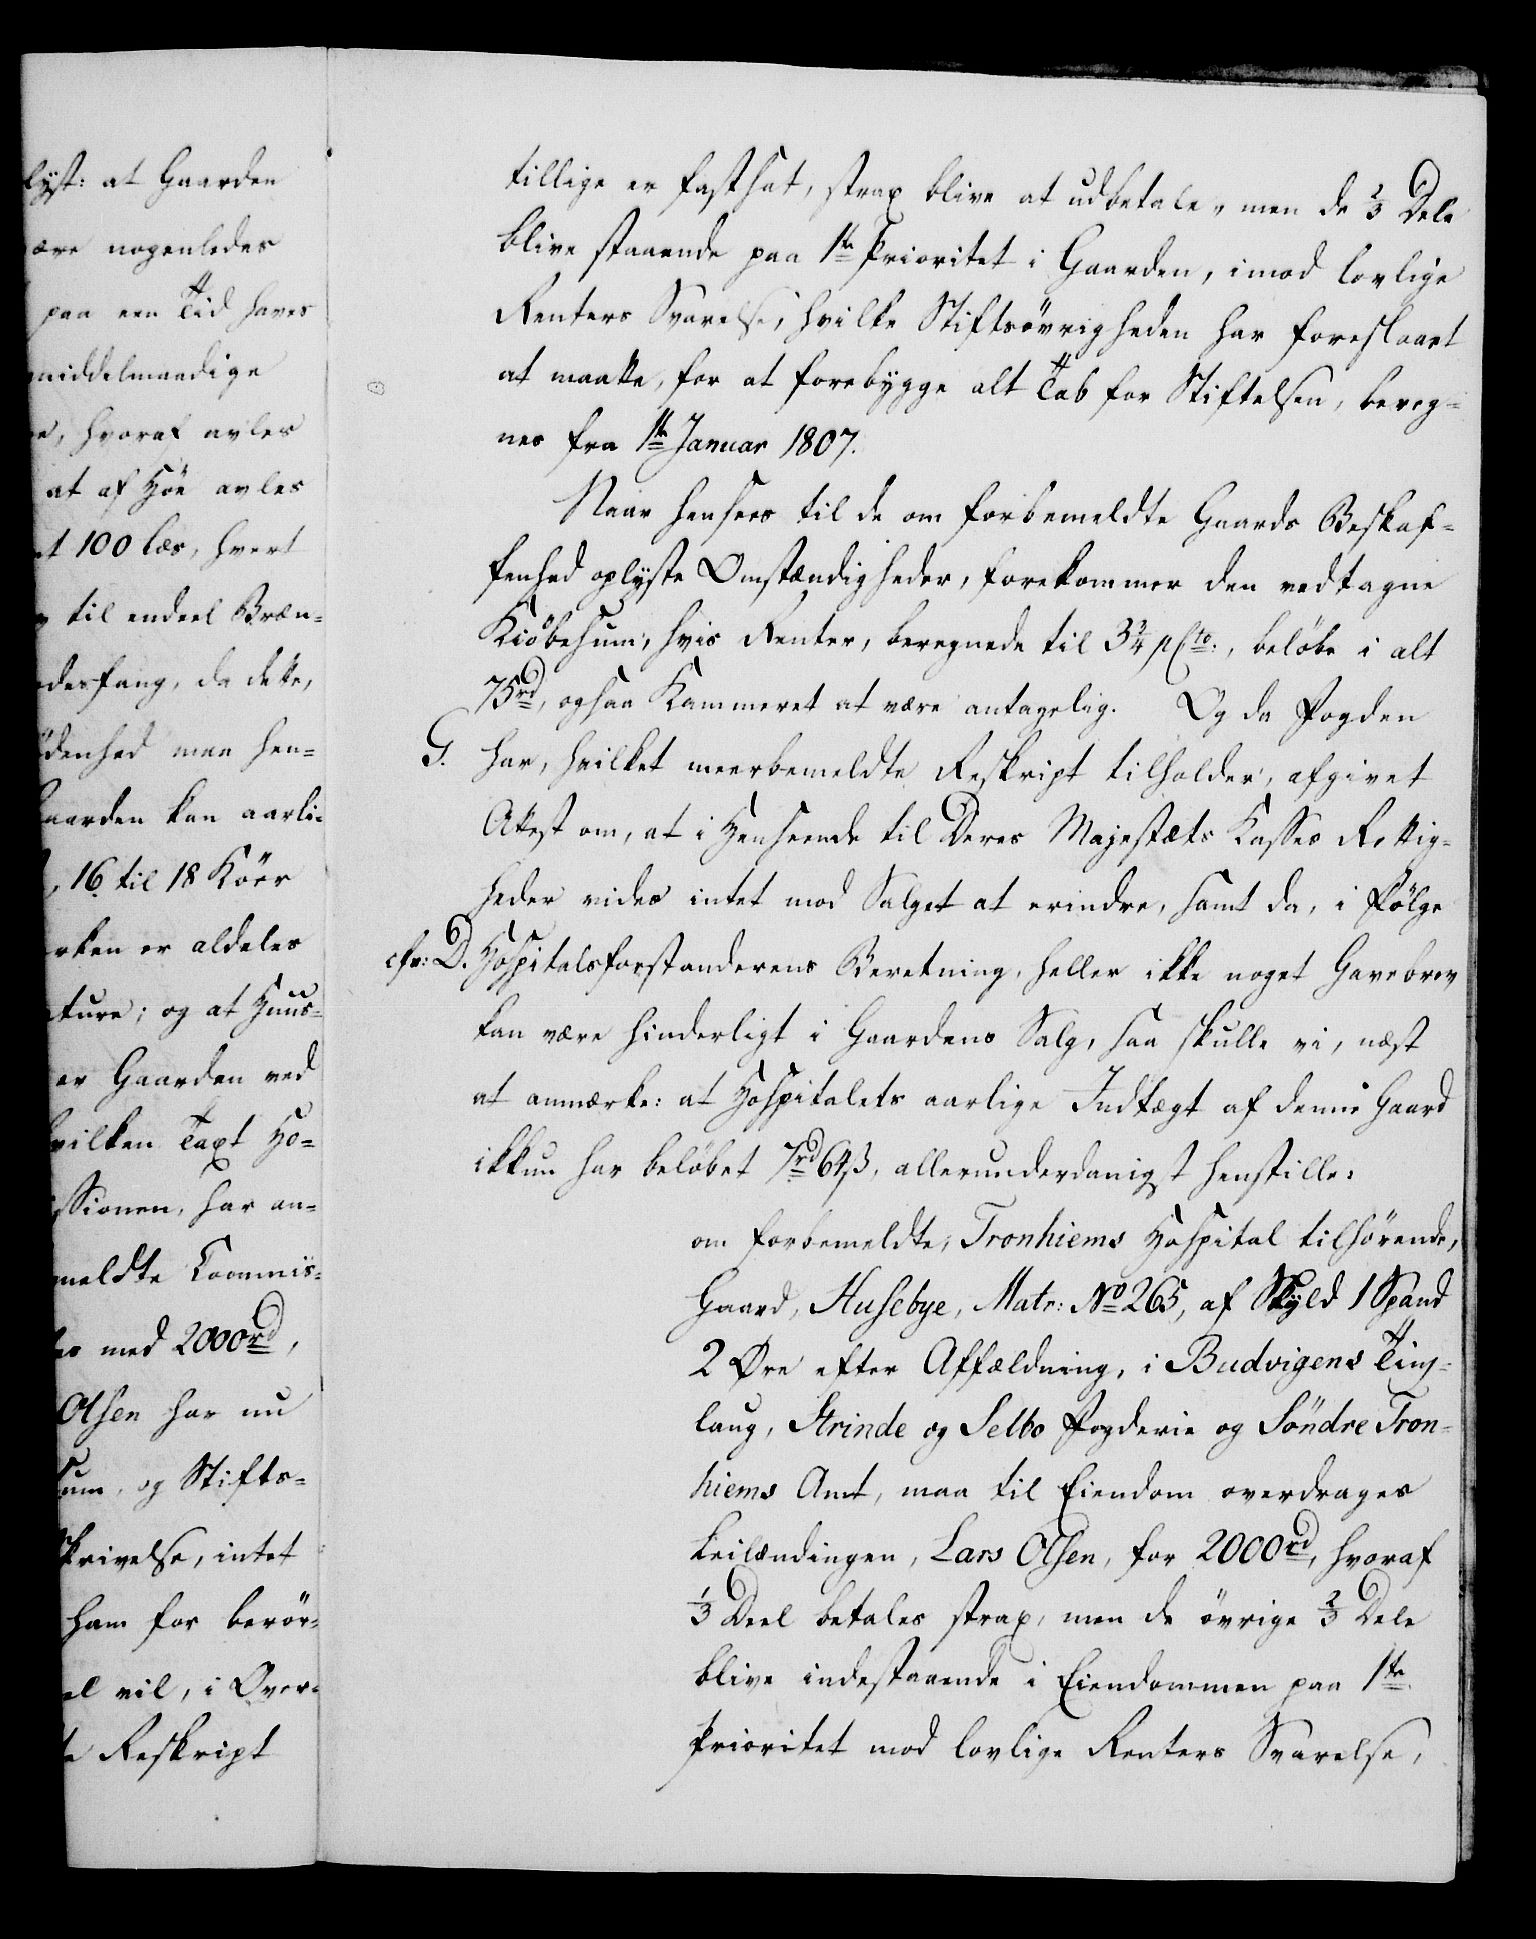 lyst: at Gaarden
være nogenledes
paa een Tid haves
middelmaadige
hvoraf avles
at af Höe avles
100 læs, hvert
til endeel Bræn-
desfang, da dette,
denhed maa hen-
aarden kan aarli-
16 til 18 Köer
rken er aldeles
ture; og at Huus-
er Gaarden ved
hvilken Taxt Ho-
ssionen, har an-
meldte Commis-
med 2000rd,
Olsen har nu
Sum, og Stifts-
Skrivelse, intet
ham for berör-
el vil, i Over-
te Reskript
tillige er fastsat, strax blive at udbetale, men de 2/3 Dele
blive staaende paa 1te Prioritet i Gaarden, imod lovlige
Renters Svarelse, hvilke Stiftsövrigheden har foreslaaet
at maatte, for at forebygge alt Tab for Stiftelsen, bereg-
nes fra 1te Januar 1807.
Naar hensees til de om forbemeldte Gaards Beskaf-
fenhed oplyste Omstændigheder, forekommer den vedtagne
Kiöbesum, hvis Renter, beregnede til 3 3/4 pCto:, belöbe i alt
75rd, ogsaa Kammeret at være antagelig. Og da Fogden
G. har, hvilket meerbemeldte Reskript tilholder, afgivet
Attest om, at i Henseende til Deres Majestæts Kasses Rettig-
heder vides intet mod Salget at erindre, samt da, i Fölge
cfr: D. Hospitalsforstanderens Beretning, heller ikke noget Gavebrev
kan være hinderligt i Gaardens Salg, saa skulle vi, næst
at anmærke: at Hospitalets aarlige Indtægt af denne Gaard
ikkun har belöbet 7rd 64ß, allerunderdanigst henstille:
om forbemeldte, Tronhiems Hospital tilhörende,
Gaard, Husebye, Matr: No 265, af Skyld 1 Spand
2 Øre efter Affældning, i Budvigens Ting-
laug, Strinde og Selbo Fogderie og Söndre Tron-
hiems Amt, maa til Eiendom overdrages
Leilændingen, Lars Olsen, for 2000rd, hvoraf
1/3 Deel betales strax, men de övrige 2/3 Dele
blive indestaaende i Eiendommen paa 1te
Prioritet mod lovlige Renters Svarelse,